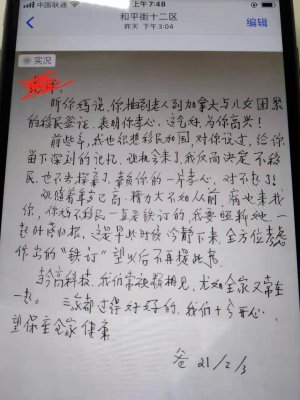 中国联通
上午7:48
和平街十二区
昨天 下午3:04
编辑
实况
听你妈说,你抽到老人到加拿大与儿女团聚
的移民签证,表明你孝心、这
为你高兴!
前些年,我也很想移民加国,对你说过,给你
留下深刻的记忆,现机会来了,我反而决定不移
民,也不去探亲了,辜负你的一片孝心,对不起了!
观随着年岁已高,精力大不如从前,病也来找
你,你妈不移民一直是铁订的,我要照料她,一
起叶落归根,这是早些时候冷静下来,全方位考虑
作出的“铁订”望以后不再提此意
高科技,我们常视频相见,尤如全家又常在
一起。 三家都过得好好的,我们十分开心。
望保重全家健康
爸 21/2/3